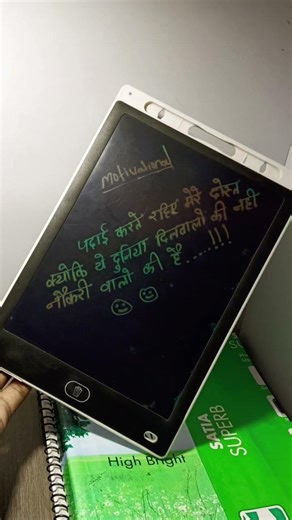 Motivational
पढ़ाई करते रहिए मेरे दोस्त
क्योंकि ये दुनिया दिलवालो की नही
नौकरी वालो की है.....!!!
SATIA
SUPERB
High Bright